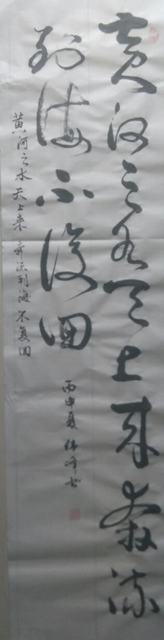 黄河之水天上来奔流
到海不复回
黄河之水天上来奔流到海不复回
丙申夏